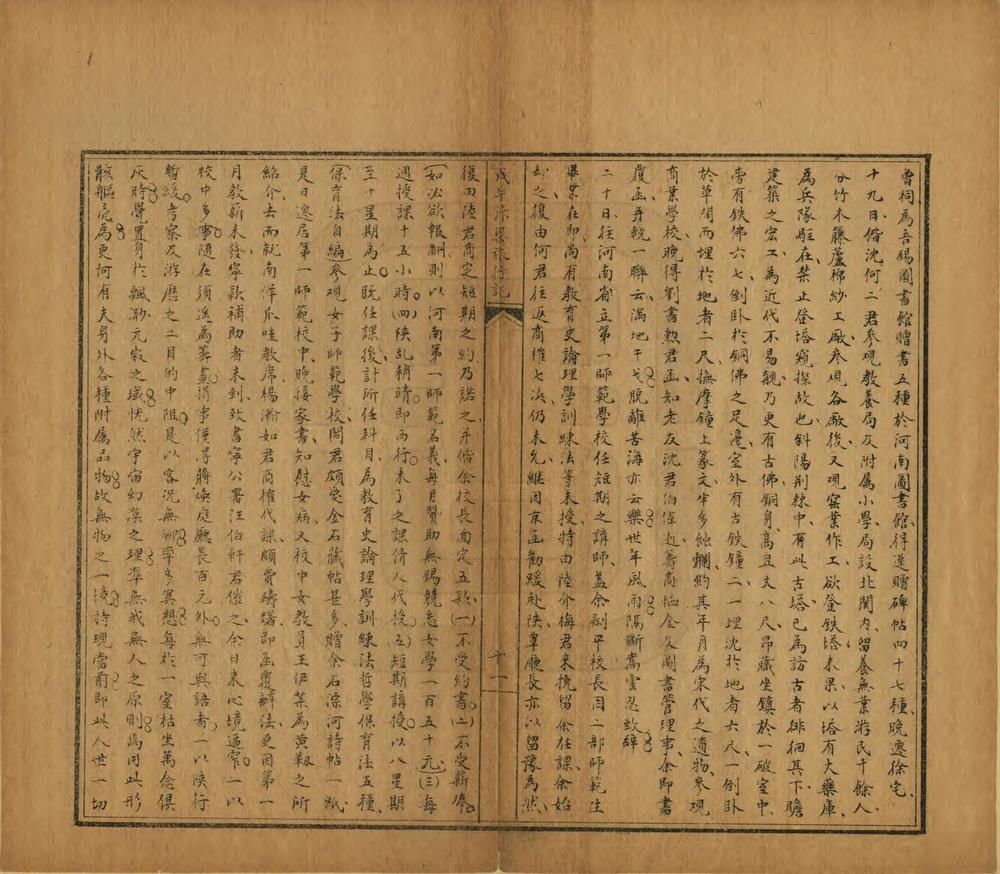 曹祠為吾錫圖書館贈書五種於河南圖書館得還贈碑帖四十七種晚遷徐宅
十九日偕沈何二君參觀教養局及附屬小學局設北關內留養無業游民千餘人
分竹木籐蘆棉紗工廠參觀各廠後又觀窯業作工欲登鐵塔未果以塔有火藥庫
為兵隊駐在禁止登塔窺探故也斜陽荊棘中有此古塔已為訪古者徘徊其下瞻
建築之宏工為近代不易覩乃更有古佛銅身高且丈八尺昂藏坐鎮於一破室中
旁有鉄佛六七倒卧於銅佛之足邊室外有古鉄鐘二一埋沈於地者六尺一倒卧
於草間而埋於地者二尺撫摩鐘上篆文半多蝕爛約其年月為宋代之遺物參觀
商業學校晚得劉書勲君函知老友沈君伯偉逝蓋商恤金及圖書管理事余即書
覆函并輓一聯云滿地干戈脫離苦海亦云樂世年風雨隔斷嵩雲忍致辭
二十日往河南省立第一師範學校任短期之講師蓋余到平校長因二部師範生
畢業在即尚有教育史論理學訓練法等未授特由陸介梅君來挽留余任課余始
却之復由何君往返商榷七次仍未允繼因京函勸緩赴陝覃廳長亦以留豫為然
戊午游梁旅行記
十一
復由陸君商定短期之約乃諾之并偕余校長面定五款(一)不受約書(二)不受薪俸
(如必欲報酬則以河南第一師範名義每月贊助無錫競志女學一百五十元(三)每
週授課十五小時(四)陝亂稍靖即西行未了之課倩人代授(五)短期講授以八星期
至十星期為止既任課後計所任科目為教育史論理學訓練法哲學保育法五種
(保育法自編)參觀女子師範學校閻君頗愛金石藏帖甚多贈余石淙河詩帖一紙
是日遷居第一師範校中晚接家書知慰女病又校中女教員王伊荼為黃靱之所
紹介去而就南洋爪哇教席楊瀚如君商權代課頗費躊躇即函覆辦法更因第一
月教薪未發寧款補助者未到致書寧公署汪伯軒君催之余日来心境逼窄一以
校中多事隨在須遙為籌畫捐事僅得蔣煥庭廳長百元外無可與語者一以陝行
暫緩考察及游歷之二目的中阻是以客況無聊率多冥想每於一室枯坐萬念俱
灰時覺置身於飄渺冗寂之域恍然宇宙幻漠之理率無我無人之原則為用此形
骸軀壳為更何有夫身外各種附属品物故無物之一境特現當前即此人世一切